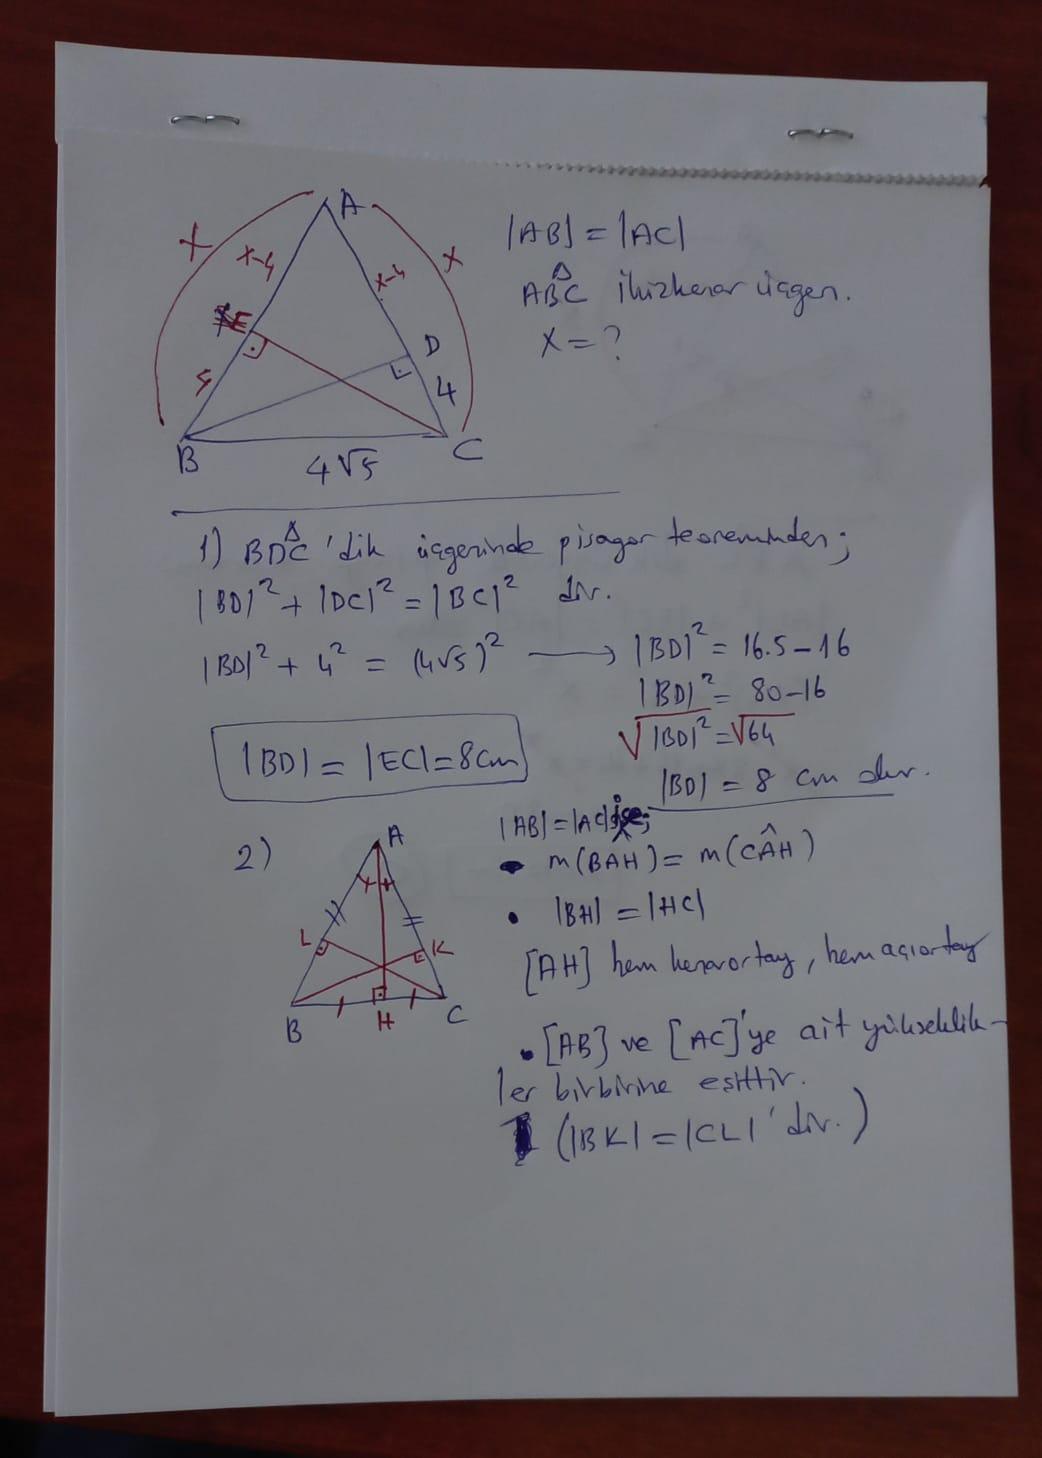 A
x
x-4
x-4
x
E
D
4
B
4√5
C
|AB| = |AC|
ABC ikizkenar üçgen.
x = ?
1) BDC 'dik üçgeninde pisagor teoreminden;
|BD|² + |DC|² = |BC|² dir.
|BD|² + 4² = (4√5)² → |BD|² = 16.5-16
|BD|² = 80-16
√|BD|² = √64
|BD| = 8 cm dir.
|BD| = |EC| = 8cm
2)
A
L
K
B
H
C
|AB| = |AC| ise;
• m(BAH) = m(CÂH)
• |BH| = |HC|
[AH] hem kenarortay, hem açıortay
• [AB] ve [AC]'ye ait yükseklik-
ler birbirine eşittir.
(|BK| = |CL| 'dir.)